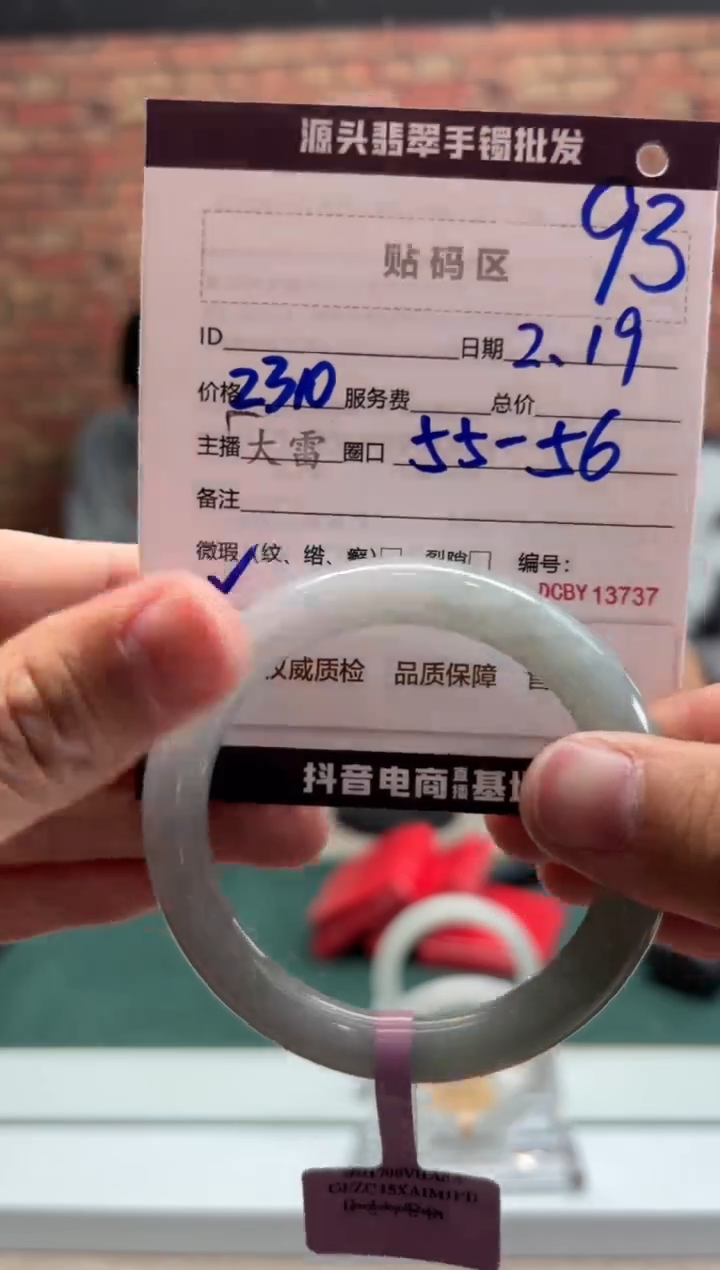 源头翡翠手镯批发
93
贴码区
ID 日期 2.19
价格 2310 服务费 总价
主播 大雷 圈口 55-56
备注
微瑕 (纹、绺、癣)□ 裂隙□ 编号:
✓
DCBY 13737
权威质检 品质保障
抖音电商直播基地